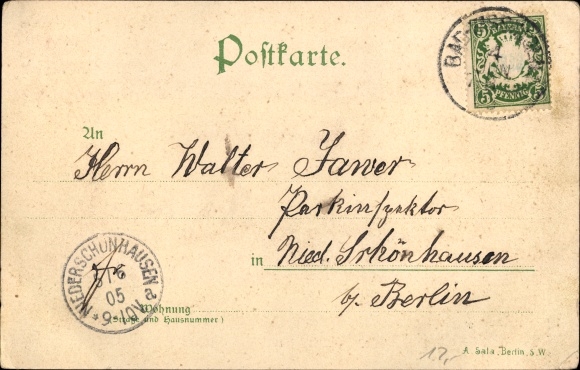 Postkarte.
BAD
5 5
PFENNIG
An
Herrn Walter Jawer
Parkinspektor
in Nied. Schönhausen
b/ Berlin
NIEDERSCHÖNHAUSEN
05
Wohnung
(Straße und Hausnummer)
12,-
A. Sala, Berlin, S.W.